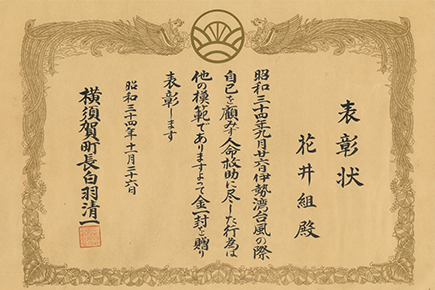 表彰状
花井組殿
昭和三十四年九月廿六日伊勢湾台風の際
自己を顧みず人命救助に尽した行為は
他の模範でありますよって金一封を贈り
表彰します
昭和三十四年十一月二十六日
横須賀町長白羽清一